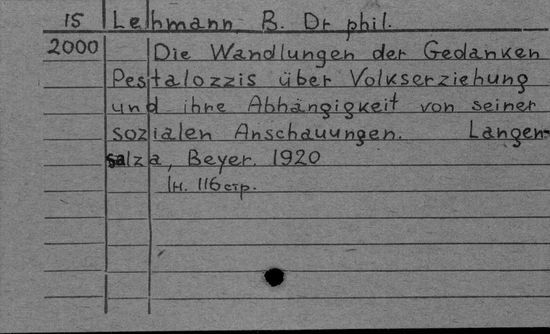 15 Lehmann, B. Dr phil.
2000 Die Wandlungen der Gedanken
Pestalozzis über Volkserziehung
und ihre Abhängigkeit von seiner
sozialen Anschauungen. Langen-
salza, Beyer. 1920
1н. 116 стр.